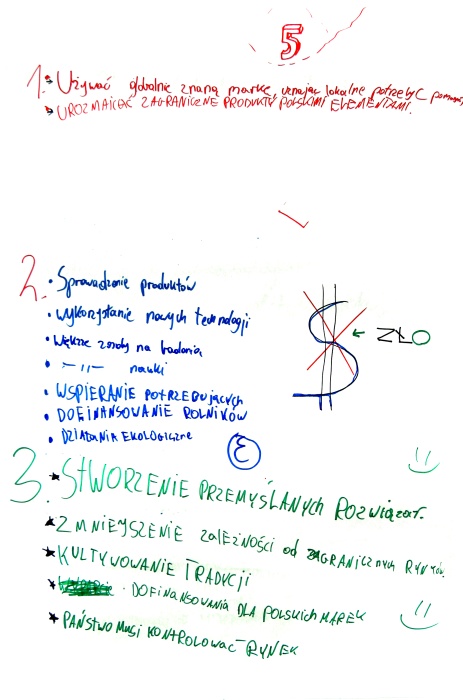 5
1. • Używać globalnie znaną markę, uznając lokalne potrzeby (
• UROZMAICAĆ ZAGRANICZNE PRODUKTY POLSKIMI ELEMENTAMI.
2. • Sprowadzenie produktów
• wykorzystanie nowych technologii
• Większe zasoby na badania
• —"— nauki
• WSPIERANIE POTRZEBUJĄCYCH
• DOFINANSOWANIE ROLNIKÓW
• DZIAŁANIA EKOLOGICZNE
$ ← ZŁO
3. ★ STWORZENIE PRZEMYŚLANYCH ROZWIĄZAŃ.
★ ZMNIEJSZENIE zależności od ZAGRANICZNYCH RYNKÓW
★ KULTYWOWANIE TRADYCJI
★ DOFINANSOWANIA DLA POLSKICH MAREK
★ PAŃSTWO MUSI KONTROLOWAĆ RYNEK